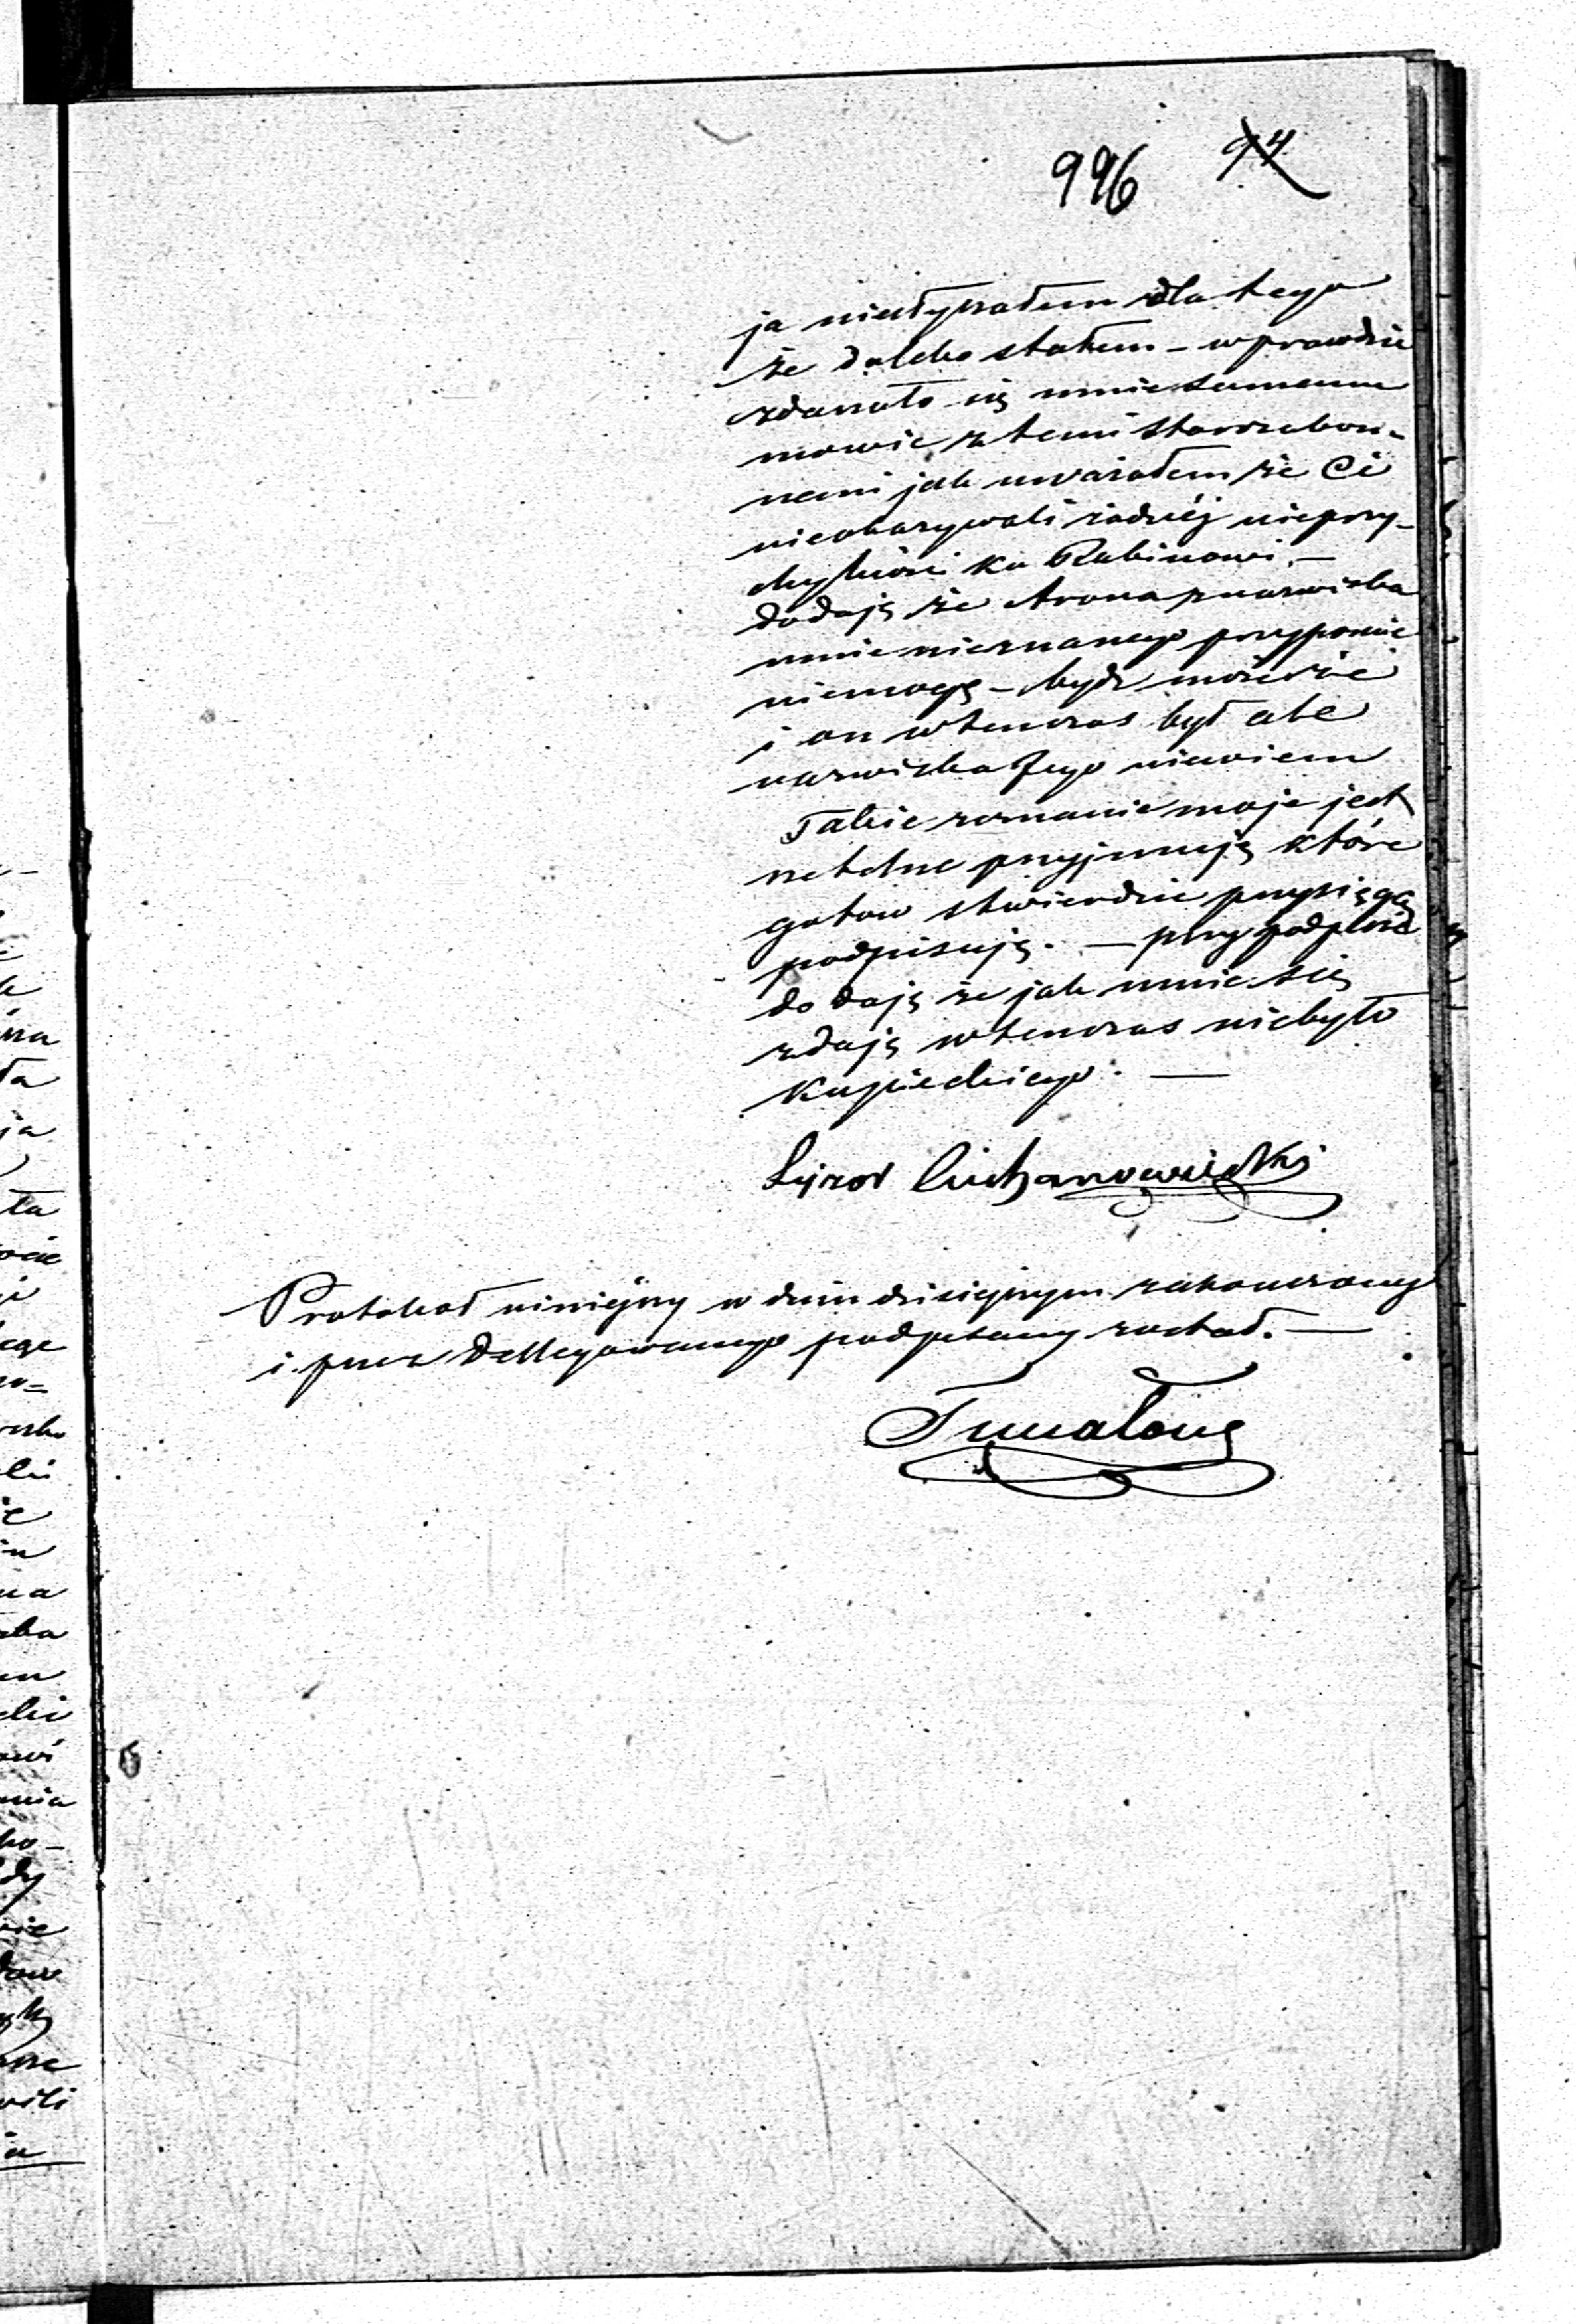 996 94
ja niesłyszałem dla tego
że daleko stałem – wprawdzie
zdarzało się mnie samemu
mowić z temi starozakon-
nemi jak uważałem że Ci
nieokazywali żadnéj nieprzy-
chylności ku Rabinowi. –
dodaję że Arona z nazwiska
mnie nieznanego przypomnieć
niemogę – bydź może że
i on wtenczas był ale
nazwiska Jego niewiem
Takie zeznanie moje jest
rzetelne przyjmuję które
gotow stwierdzić przysięgą
podpisuję. – przy podpisie
dodaję że jak mnie się
zdaje wtenczas niebyło
Kupieckiego. –
Ciechanowiecki
Protokoł niniejszy w dniu dzisiejszym zakonczony
i przez Dellegowanego podpisany został. –